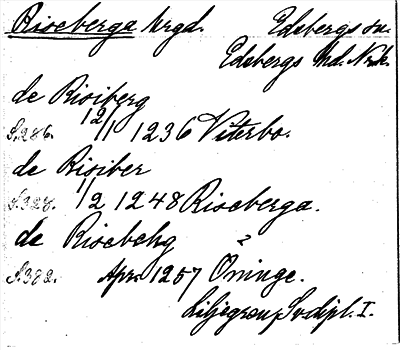 Riseberga krgd. Edsbergs sn.
Edsbergs hd. Nrk.
de Risiberg
S. 286. 12/11 1236 Viterbo.
de Risiber
S. 328. 1/2 1248 Riseberga.
de Risebehg
S. 382. Apr. 1257 Öninge.
Liljegren, Sv dipl. I.